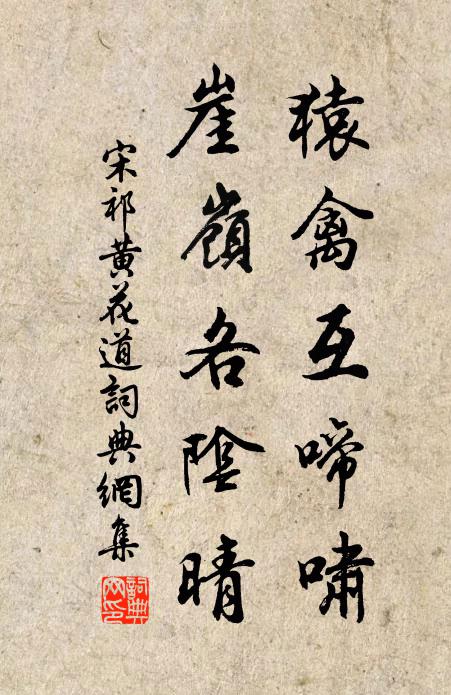 猿禽互啼嘯
崖嶺各陰晴
宋祁黄花道詞典網集
詞典网印